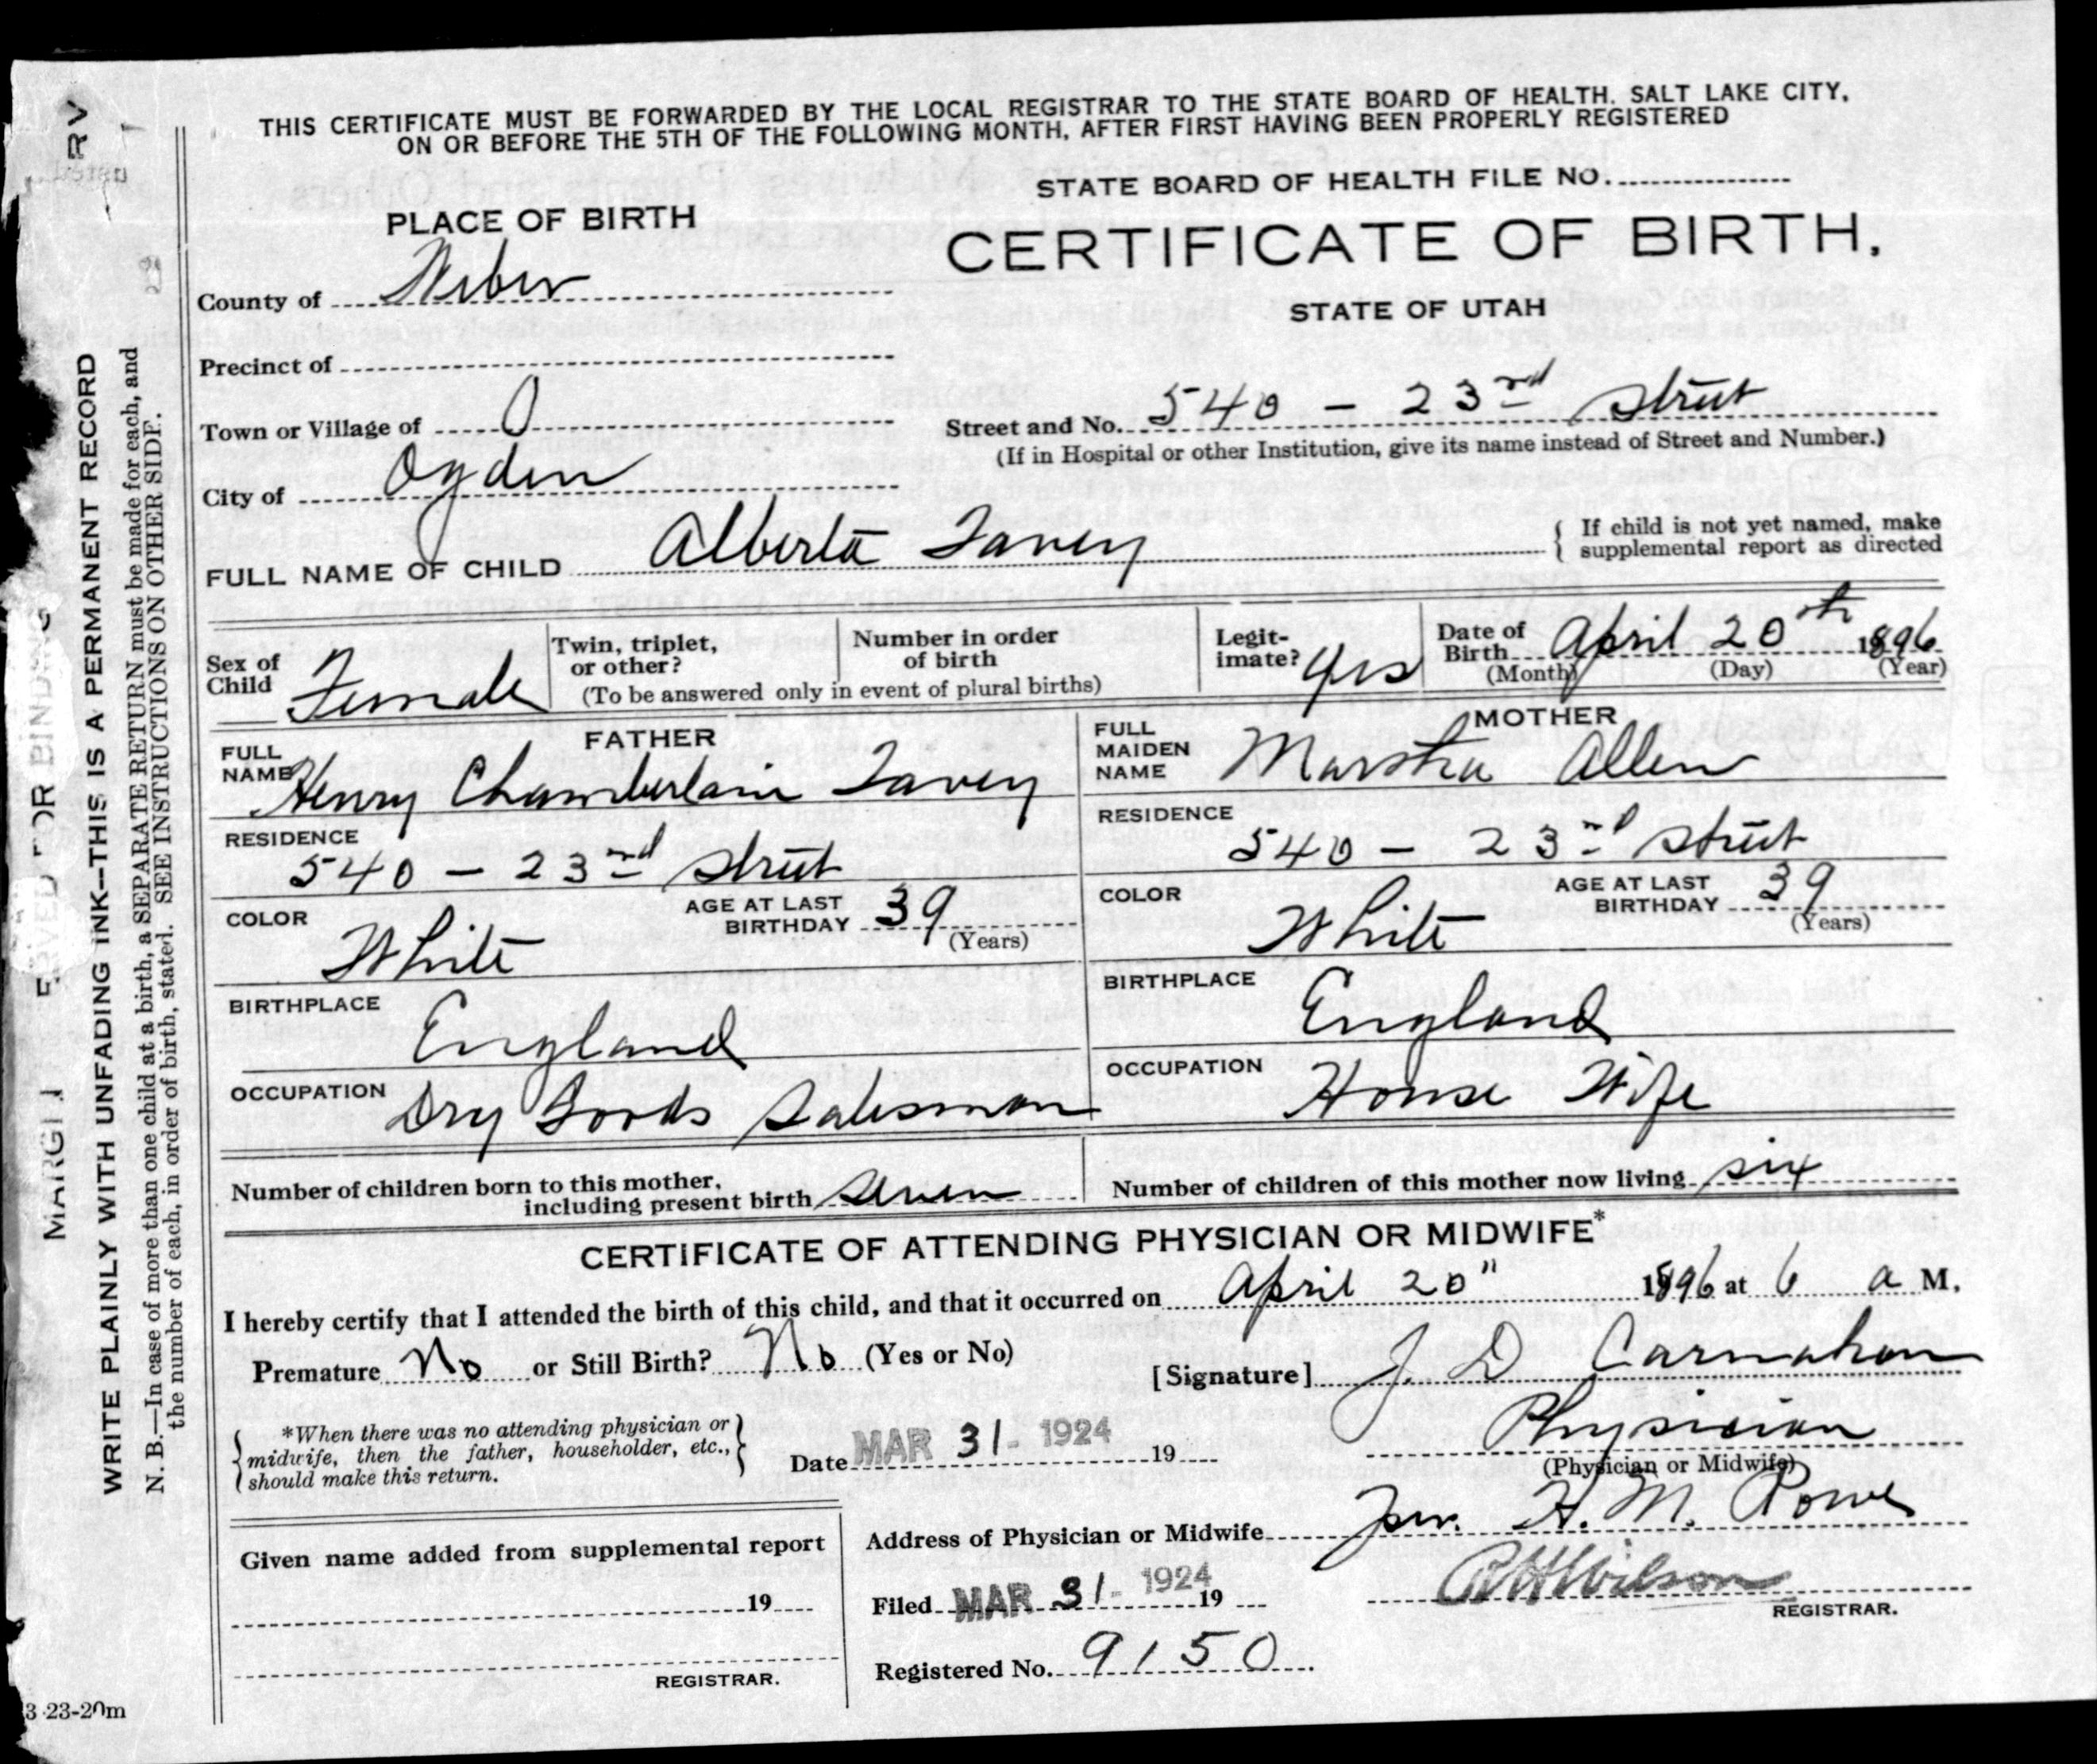 THIS CERTIFICATE MUST BE FORWARDED BY THE LOCAL REGISTRAR TO THE STATE BOARD OF HEALTH. SALT LAKE CITY,
ON OR BEFORE THE 5TH OF THE FOLLOWING MONTH, AFTER FIRST HAVING BEEN PROPERLY REGISTERED
STATE BOARD OF HEALTH FILE NO.
PLACE OF BIRTH
CERTIFICATE OF BIRTH,
STATE OF UTAH
County of Weber
Precinct of
Town or Village of
Street and No. 540 - 23rd Street
(If in Hospital or other Institution, give its name instead of Street and Number.)
City of Ogden
FULL NAME OF CHILD Alberta Tavey
{ If child is not yet named, make
supplemental report as directed
Sex of Child Female
Twin, triplet, or other?
Number in order of birth
(To be answered only in event of plural births)
Legit-imate? Yes
Date of Birth April 20th 1896
(Month) (Day) (Year)
FATHER
FULL NAME Henry Chamberlain Tavey
RESIDENCE
540 - 23rd Street
COLOR White
AGE AT LAST BIRTHDAY 39 (Years)
BIRTHPLACE England
OCCUPATION Dry Goods Salesman
MOTHER
FULL MAIDEN NAME Martha Allen
RESIDENCE
540 - 23rd Street
COLOR White
AGE AT LAST BIRTHDAY 39 (Years)
BIRTHPLACE England
OCCUPATION House Wife
Number of children born to this mother, including present birth seven
Number of children of this mother now living six
CERTIFICATE OF ATTENDING PHYSICIAN OR MIDWIFE*
I hereby certify that I attended the birth of this child, and that it occurred on April 20" 1896 at 6 a M.
Premature No or Still Birth? No (Yes or No)
[Signature] J. D. Carnahan
Physician
(Physician or Midwife)
*When there was no attending physician or
midwife, then the father, householder, etc.,
should make this return.
Date MAR 31 - 1924 19
Address of Physician or Midwife Per. H. M. Rowe
Given name added from supplemental report
19
REGISTRAR.
Filed MAR 31 - 1924 19
Wilson
REGISTRAR.
Registered No. 9150
3 23-20m
WRITE PLAINLY WITH UNFADING INK—THIS IS A PERMANENT RECORD
N. B.—In case of more than one child at a birth, a SEPARATE RETURN must be made for each, and
the number of each, in order of birth, stated. SEE INSTRUCTIONS ON OTHER SIDE.